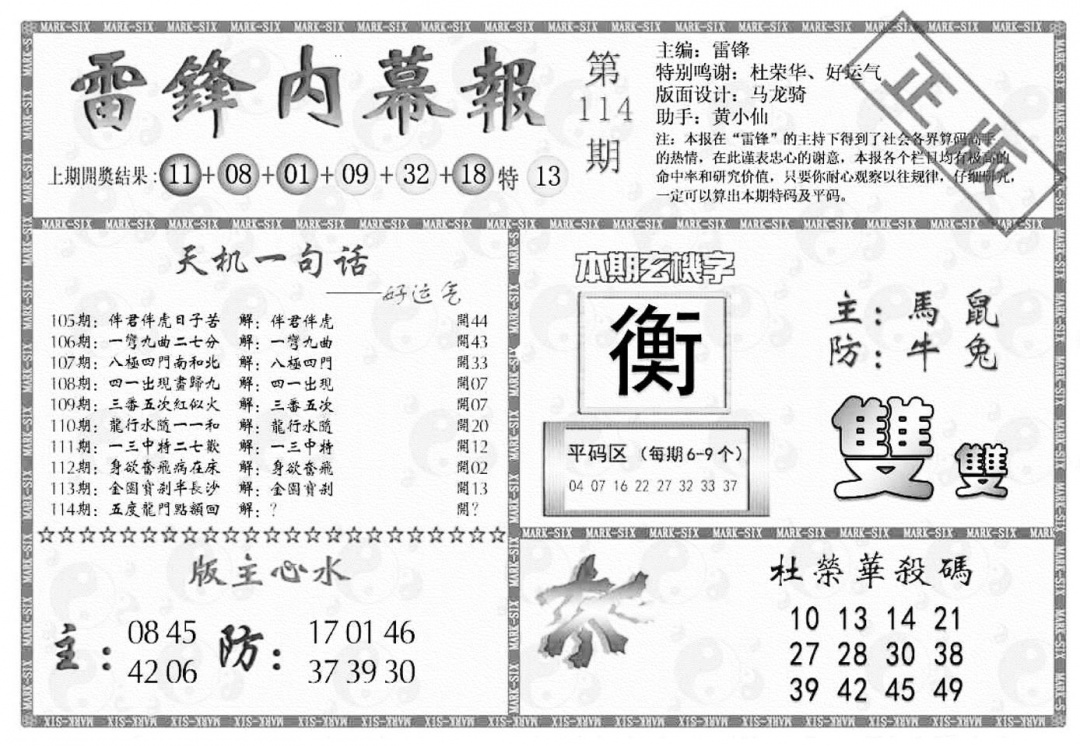 雷鋒内幕報
第114期
上期開獎結果：11+08+01+09+32+18特13
主编：雷锋
特别鸣谢：杜荣华、好运气
版面设计：马龙骑
助手：黄小仙
注：本报在“雷锋”的主持下得到了社会各界算码高手
的热情，在此谨表忠心的谢意，本报各个栏目均有极高的
命中率和研究价值，只要你耐心观察以往规律，仔细研究，
一定可以算出本期特码及平码。
正版
天机一句话
——好运气
105期：伴君伴虎日子苦 解：伴君伴虎 開44
106期：一彎九曲二七分 解：一彎九曲 開43
107期：八極四門南和北 解：八極四門 開33
108期：四一出現盡歸九 解：四一出現 開07
109期：三番五次紅似火 解：三番五次 開07
110期：龍行水隨一一和 解：龍行水隨 開20
111期：一三中特二七歡 解：一三中特 開12
112期：身欲奮飛病在床 解：身欲奮飛 開02
113期：金園寶刹半長沙 解：金園寶刹 開13
114期：五度龍門點額回 解：？ 開？
☆☆☆☆☆☆☆☆☆☆☆☆☆☆☆☆☆☆☆☆☆☆☆
版主心水
主：08 45
42 06
防：17 01 46
37 39 30
本期玄機字
衡
主：馬 鼠
防：牛 兔
平码区（每期6-9个）
04 07 16 22 27 32 33 37
雙雙
杀
杜榮華殺碼
10 13 14 21
27 28 30 38
39 42 45 49
MARK-SIX